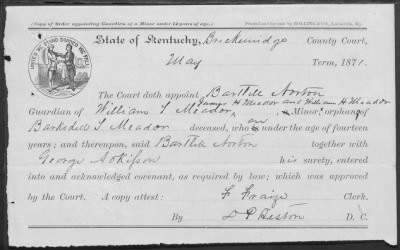 (Copy of Order appointing Guardian of a Minor under 14 years of age.)
Printed and for sale by ROLLING & CO., Louisville, Ky.
State of Kentucky, Breckenridge County Court,
UNITED WE STAND DIVIDED WE FALL
May Term, 1871.
The Court doth appoint Bartlett Norton
James H Meador and William H Meador
Guardian of William S Meador, Minor, orphan of
Barksdell S Meador deceased, who are under the age of fourteen
years; and thereupon, said Bartlett Norton together with
George Adkisson his surety, entered
into and acknowledged covenant, as required by law; which was approved
by the Court. A copy attest: Clerk.
By D. C.